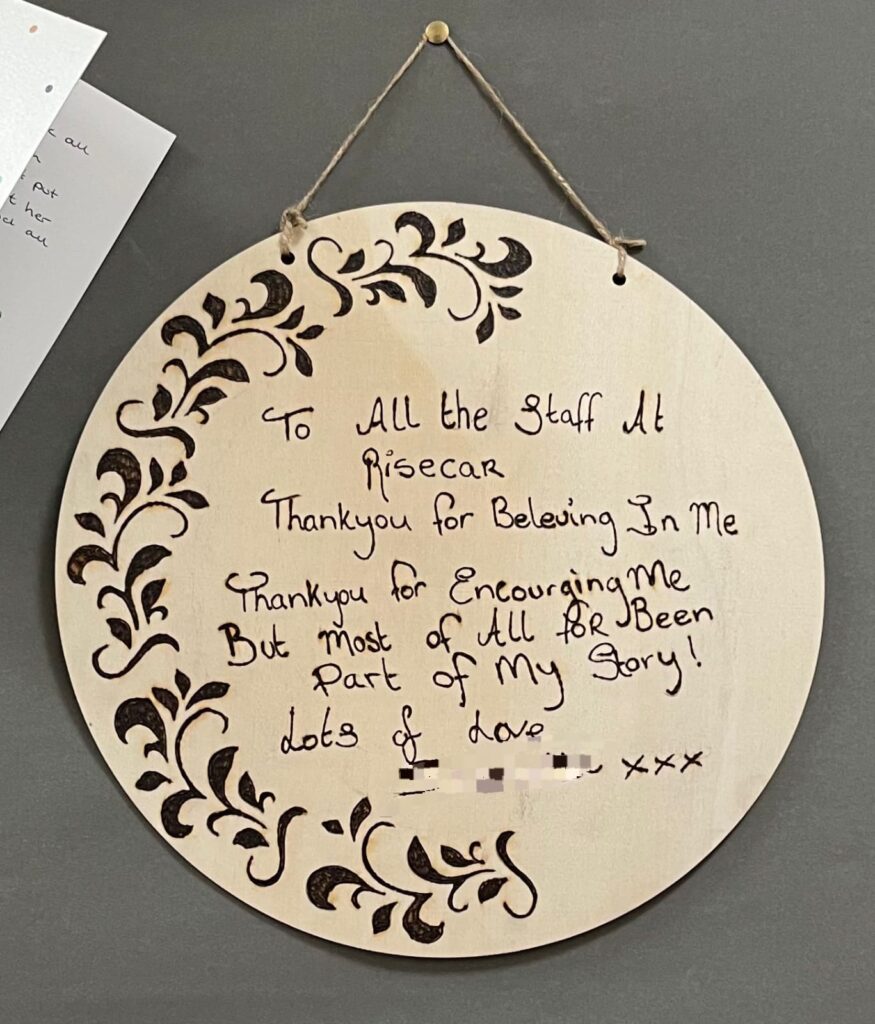 k all
n
t put
t her
all
To All the Staff At
Risecar
Thankyou for Beleving In Me
Thankyou for Encourging Me
But Most of All for Been
Part of My Story!
Lots of Love
xxx